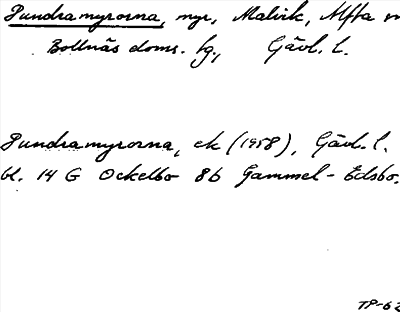 Pundramyrorna, myr, Malvik, Alfta
Bollnäs doms. fg., Gävl. l.
Pundramyrorna, ek (1958), Gävl. l.
bl. 14 G Ockelbo 8b Gammel-Edsbo.
TP-62